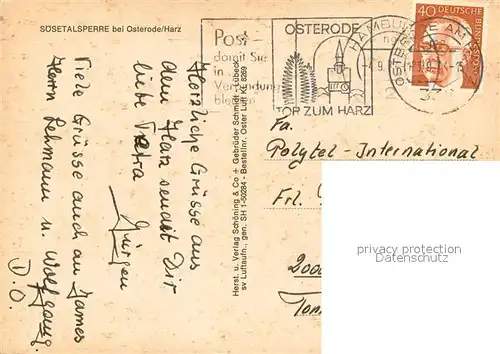 SÖSETALSPERRE bei Osterode/Harz
Herzliche Grüsse aus
dem Harz sendet Dir
liebe Petra
Jürgen
Viele Grüsse auch an James
Herrn Lehmann u. Wolfgang
D.O.
Herst. u. Verlag Schöning & Co + Gebrüder Schmidt, Lübeck
sv Luftaufn., gen. SH 1-50284 - Bestellnr. Oster Luft KE 8289
Post-
damit Sie
in
Verbindung
bleiben
OSTERODE
TOR ZUM HARZ
OSTERODE AM
40
DEUTSCHE BUNDESPOST
Fa.
Polytel-International
Frl.
2000
privacy protection
AKPOOL.DE